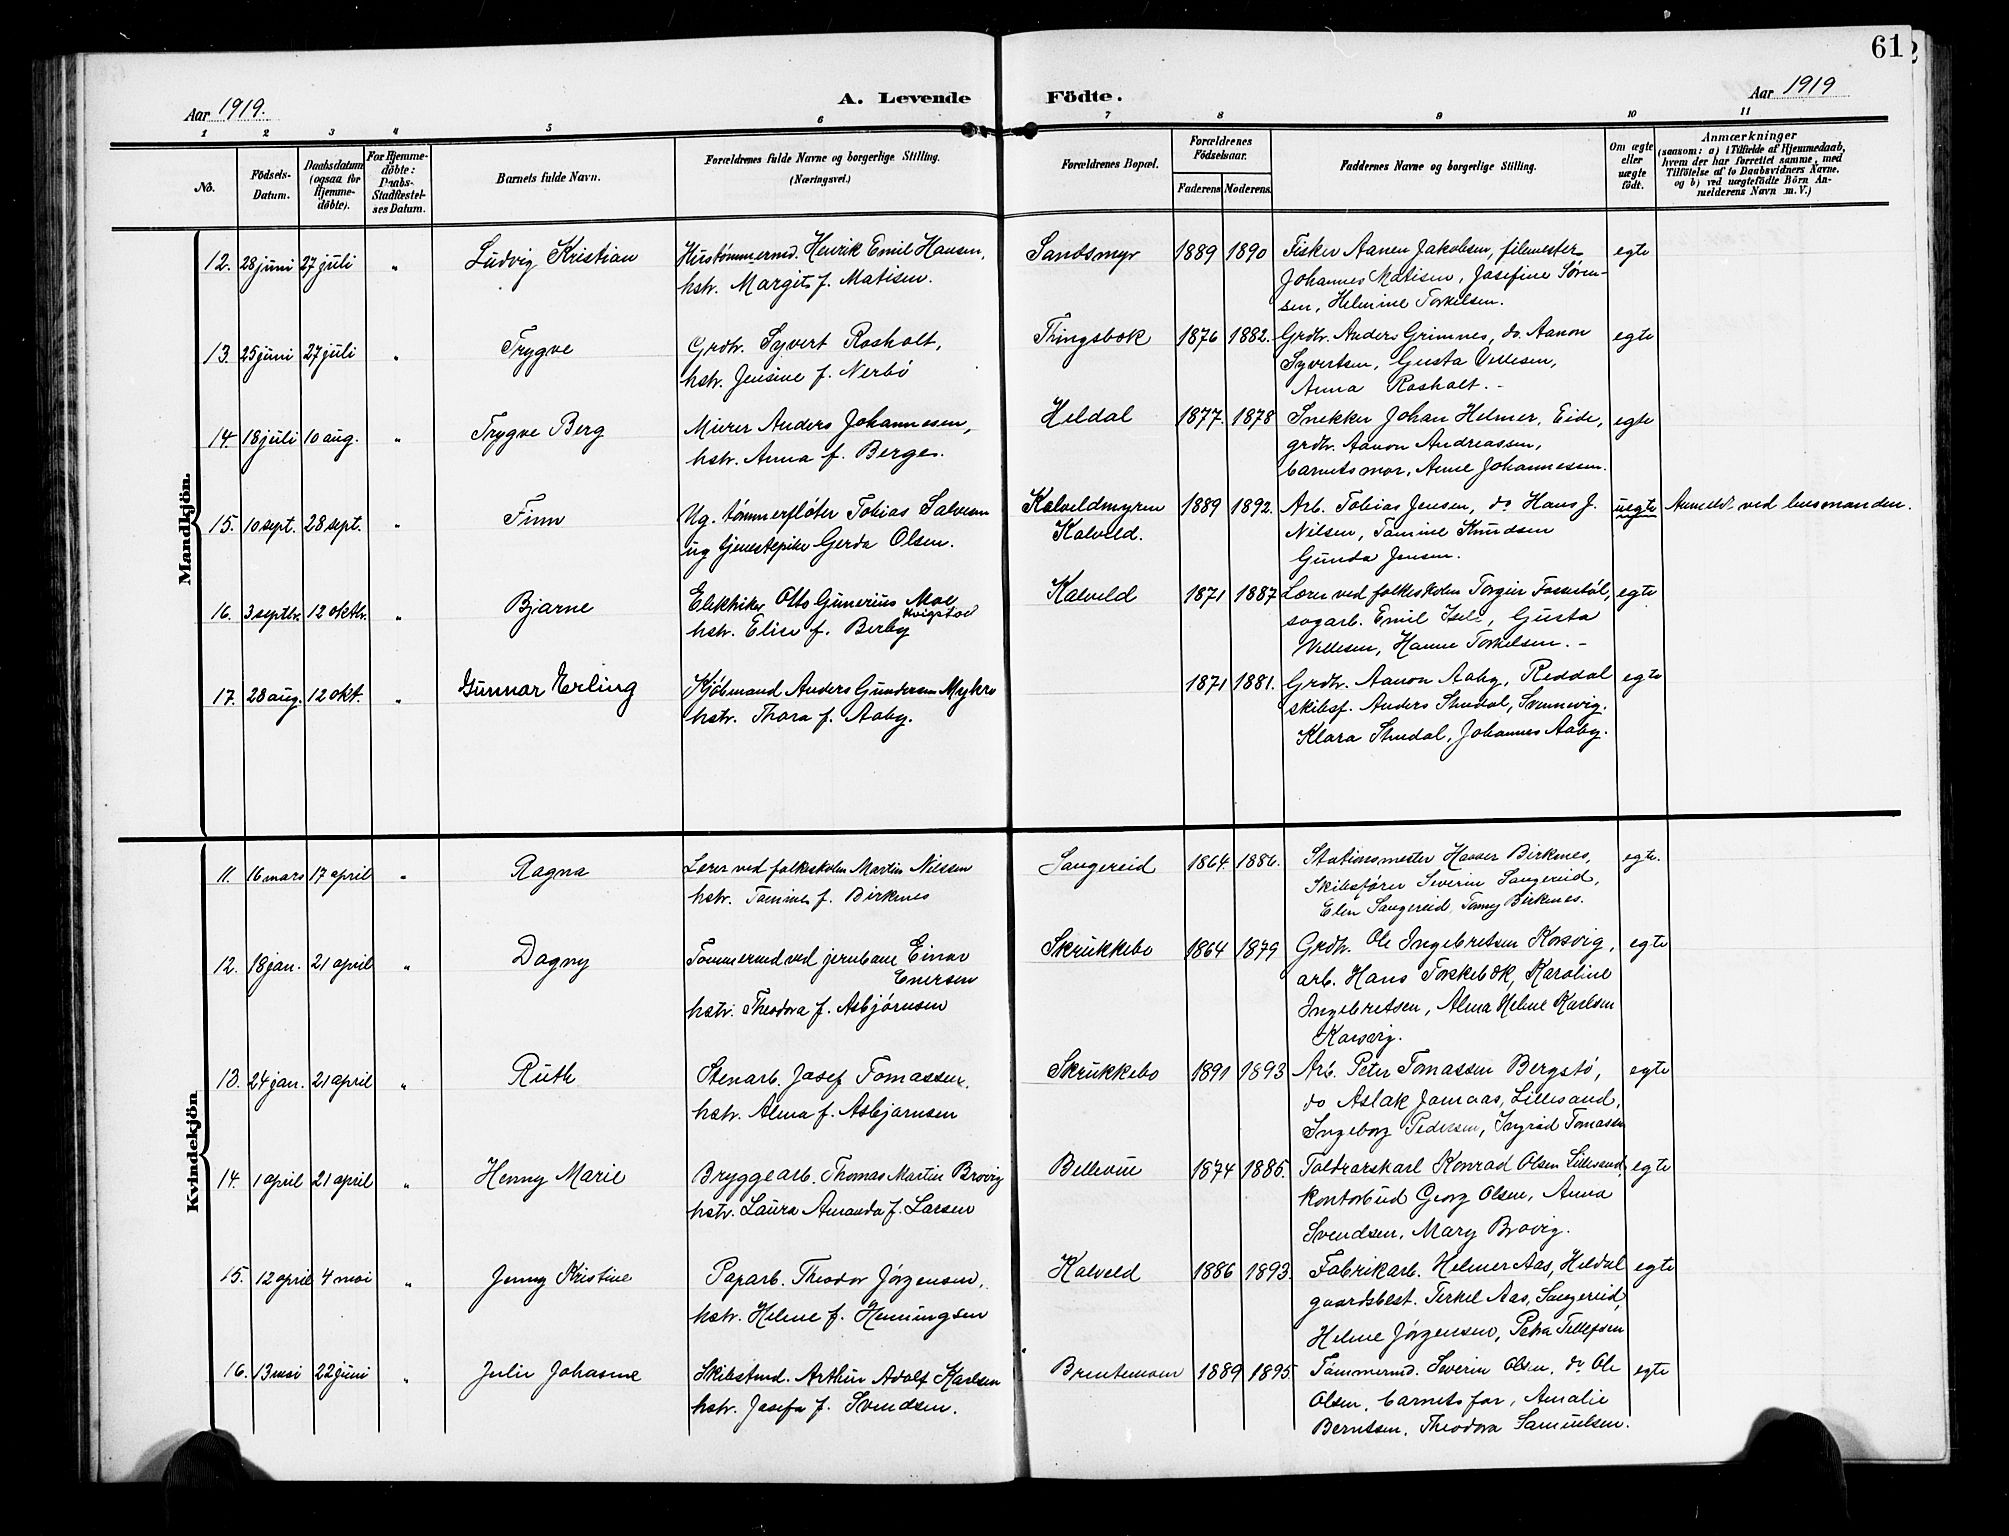 61
Aar 1919. A. Levende Födte. Aar 1919
1 2 3 4 5 6 7 8 9 10 11
No.
Födsels-Datum.
Daabsdatum (ogsaa for Hjemme-döbte).
For Hjemme-döbte: Daabs-Stadfæstel-ses Datum.
Barnets fulde Navn.
Forældrenes fulde Navne og borgerlige Stilling.
(Næringsvei.)
Forældrenes Bopæl.
Forældrenes Födselsaar.
Faderens Moderens.
Faddernes Navne og borgerlige Stilling.
Om ægte eller uægte födt.
Anmærkninger
(saasom: a) i Tilfælde af Hjemmedaab, hvem der har forrettet samme, med Tilföielse af to Daabsvidners Navne, og b) ved uægtefödte Börn An-melderens Navn m. V.)
Mandkjön.
12. 28 juni 27 juli " Ludvig Kristian Hustømmermd. Henrik Emil Hansen, Sandsmyr 1889 1890 Fisker Aanen Jakobsen, filemester egte
hstr. Margit f. Matisen. Johannes Matisen, Josefine Søren-
sen, Helmine Torkelsen.
13. 25 juni 27 juli " Trygve Grdbr. Syvert Rosholt, Thingsbok 1876 1882. Grdbr. Anders Grimnes, do. Aanon egte
hstr. Jensine f. Nerbö Syvertsen, Gusta Vellesen,
Anna Rosholt. -
14. 18 juli 10 aug. " Trygve Berg Murer Anders Johannesen, Heldal 1877. 1878 Snekker Johan Helmer, Eide, egte
hstr. Anna f. Berge. grdbr. Aanon Andreassen,
barnets mor, Anne Johannesen.
15. 10 sept. 28 sept. " Finn Ug. tømmerfløter Tobias Salvesen Kalveldmyren 1889 1892. Arb. Tobias Jensen, do Hans J. uegte Anmeldt ved lensmanden.
ug tjenestepike Gerda Olsen. Kalveld. Nilsen, Tomine Knudsen
Gunda Jensen.
16. 3 septbr. 12 oktbr. " Bjarne Elektriker Otto Gunerius Moe Kalveld 1871 1887 Lærer ved folkeskolen Torgeir Fossestöl, egte
Kvigstad
hstr. Elise f. Berby sagarb. Emil , Gusta
Vellesen, Hanne Torkelsen. -
17. 28 aug. 12 okt. " Gunnar Erling Kjöbmand Anders Gundersen Mykra 1871 1881. Grdbr. Aanon Aaby, Reddal egte
hstr. Thora f. Aaby. skibsf. Anders Strudal, Svennevig.
Klara Strudal, Johannes Aaby.
Kvindekjön
11. 16 mars 17 april " Ragna Lærer ved folkeskolen Martin Nilssen Saugereid 1864. 1886. Stationsmester Birknes, egte.
hstr. Tomine f. Birknes Skibsfører Severin Saugereid,
Elen Saugereid, Tonny Birknes.
12. 18 jan. 21 april " Dagny Tømmermd ved jernbane Einar Skrukkebo 1864 1879 Grdbr. Ole Ingebretsen Korsvig, egte
Enersen arb. Hans Torskebæk, Karoline
hstr. Theodora f. Asbjørnsen Ingebretsen, Alma Helene Karlsen
Korsvig.
13. 24 jan. 21 april " Ruth Stenarb. Josef Tomassen. Skrukkebo 1891 1893 Arb. Peter Tomassen Bergstø, egte
hstr. Alma f. Asbjørnsen do Aslak Jomaas, Lillesand,
Ingeborg Pedersen, Ingrid Tomassen
14. 1 april 21 april " Henny Marie Bryggearb. Thomas Martin Brovig Bellevue 1874 1885. Toldvarskarl Konrad Olsen Lillesand, egte
hstr. Laura Amanda f. Larsen kontorbud Georg Olsen, Anna
Svendsen, Mary Brovig.
15. 12 april 4 mai " Jenny Kristine Paparb. Theodor Jørgensen, Kalveld 1886 1893. Fabrikarb. Helmer Aas, Heldal egte
hstr. Helene f. Henningsen gaardsbest. Terkel Aas, Saugereid,
Helene Jørgensen, Petra Tellefsen
16. 13 mai 22 juni " Julie Johasine Skibstmd. Arthur Adolf Karlsen Brentemoen 1889 1895. Tømmermd. Severin Olsen, do Ole egte
hstr. Josefa f. Svendsen. Olsen, barnets far, Amalie
Berntsen, Theodora Samuelsen.